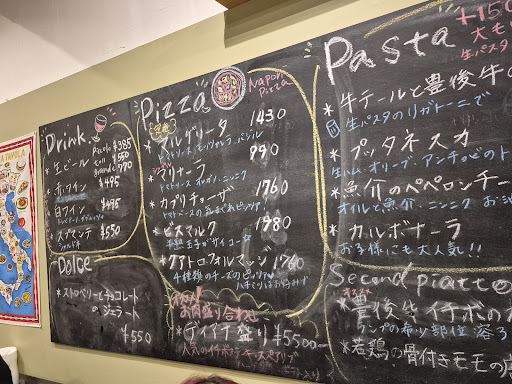 Drink
* 生ビール
Piccolo ¥385
tall ¥550
Grande ¥770
* 赤ワイン ¥495
* 白ワイン ¥495
* スプマンテ ¥550
Dolce
* ストロベリーとチョコレート
のジェラート
¥550
Pizza
Napoli Pizza
マルゲリータ 1430
トマトソース モッツァレラ バジル
* マリナーラ 990
トマトソース オレガノ、ニンニク
* カプリチョーザ 1760
* ビスマルク 1980
半熟玉子がサイコー☆
* クアトロ・フォルマッジ 1760
4種類のチーズのピッツァ
ハチミツはお好みで
お肉盛り合わせ
* ディアナ盛り ¥5500
Pasta
+150
大も
生パスタ
* 牛テールと豊後牛の
生パスタのリガトーニで
* プッタネスカ
生ハム オリーブ アンチョビのト
* 魚介のペペロンチー
オイルと魚介、ニンニク
* カルボナーラ
お子様にも大人気!!
Second piatto
* 豊後牛イチボの
ランプの希少部位
* 若鶏の骨付きモモの